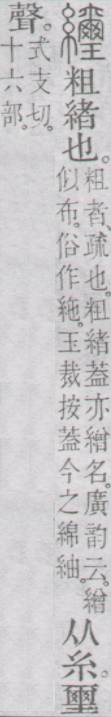 粗緒也。
粗者、疏也。粗緒葢亦繒名。廣韵云。繒
似布。俗作絁。玉裁按葢今之綿紬。
从糸。璽
聲。
式支切。
十六部。